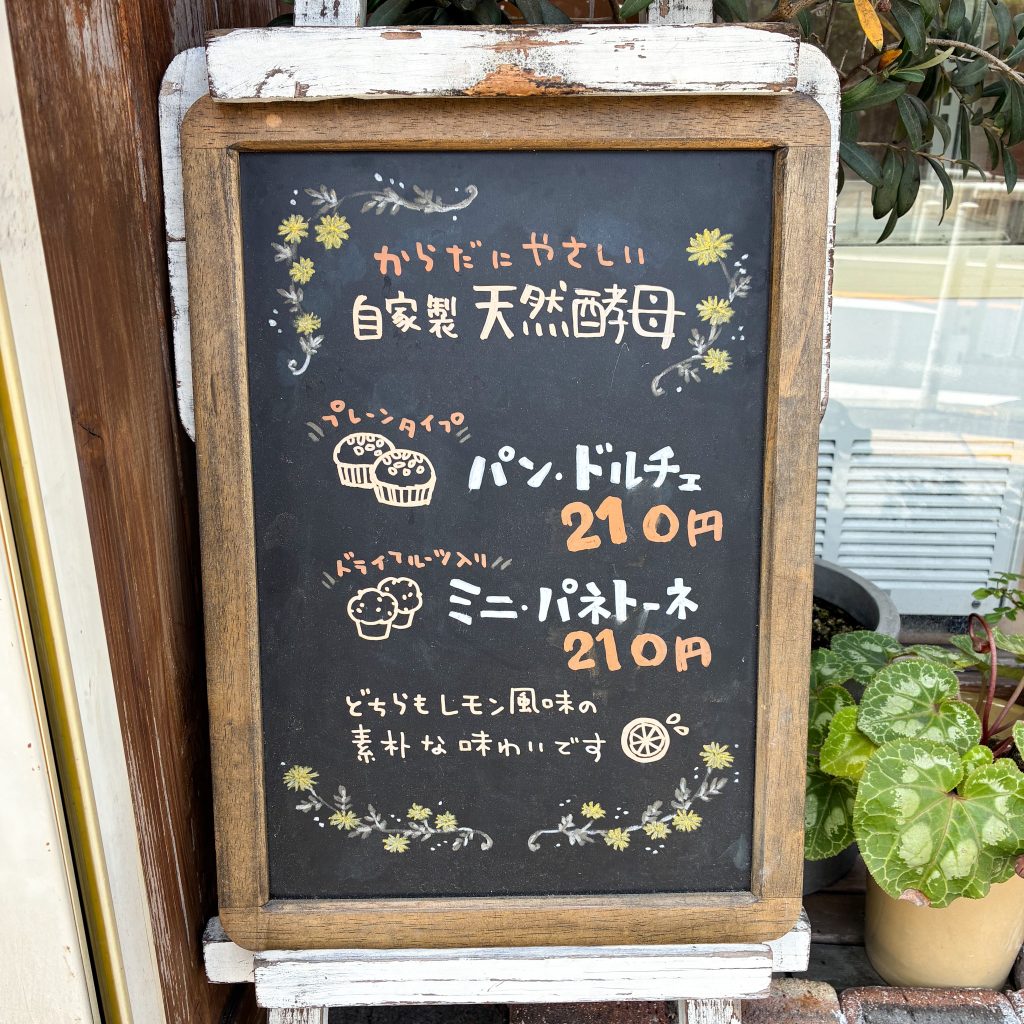 からだにやさしい
自家製 天然酵母
プレーンタイプ
パン・ドルチェ
210円
ドライフルーツ入り
ミニ・パネトーネ
210円
どちらもレモン風味の
素朴な味わいです